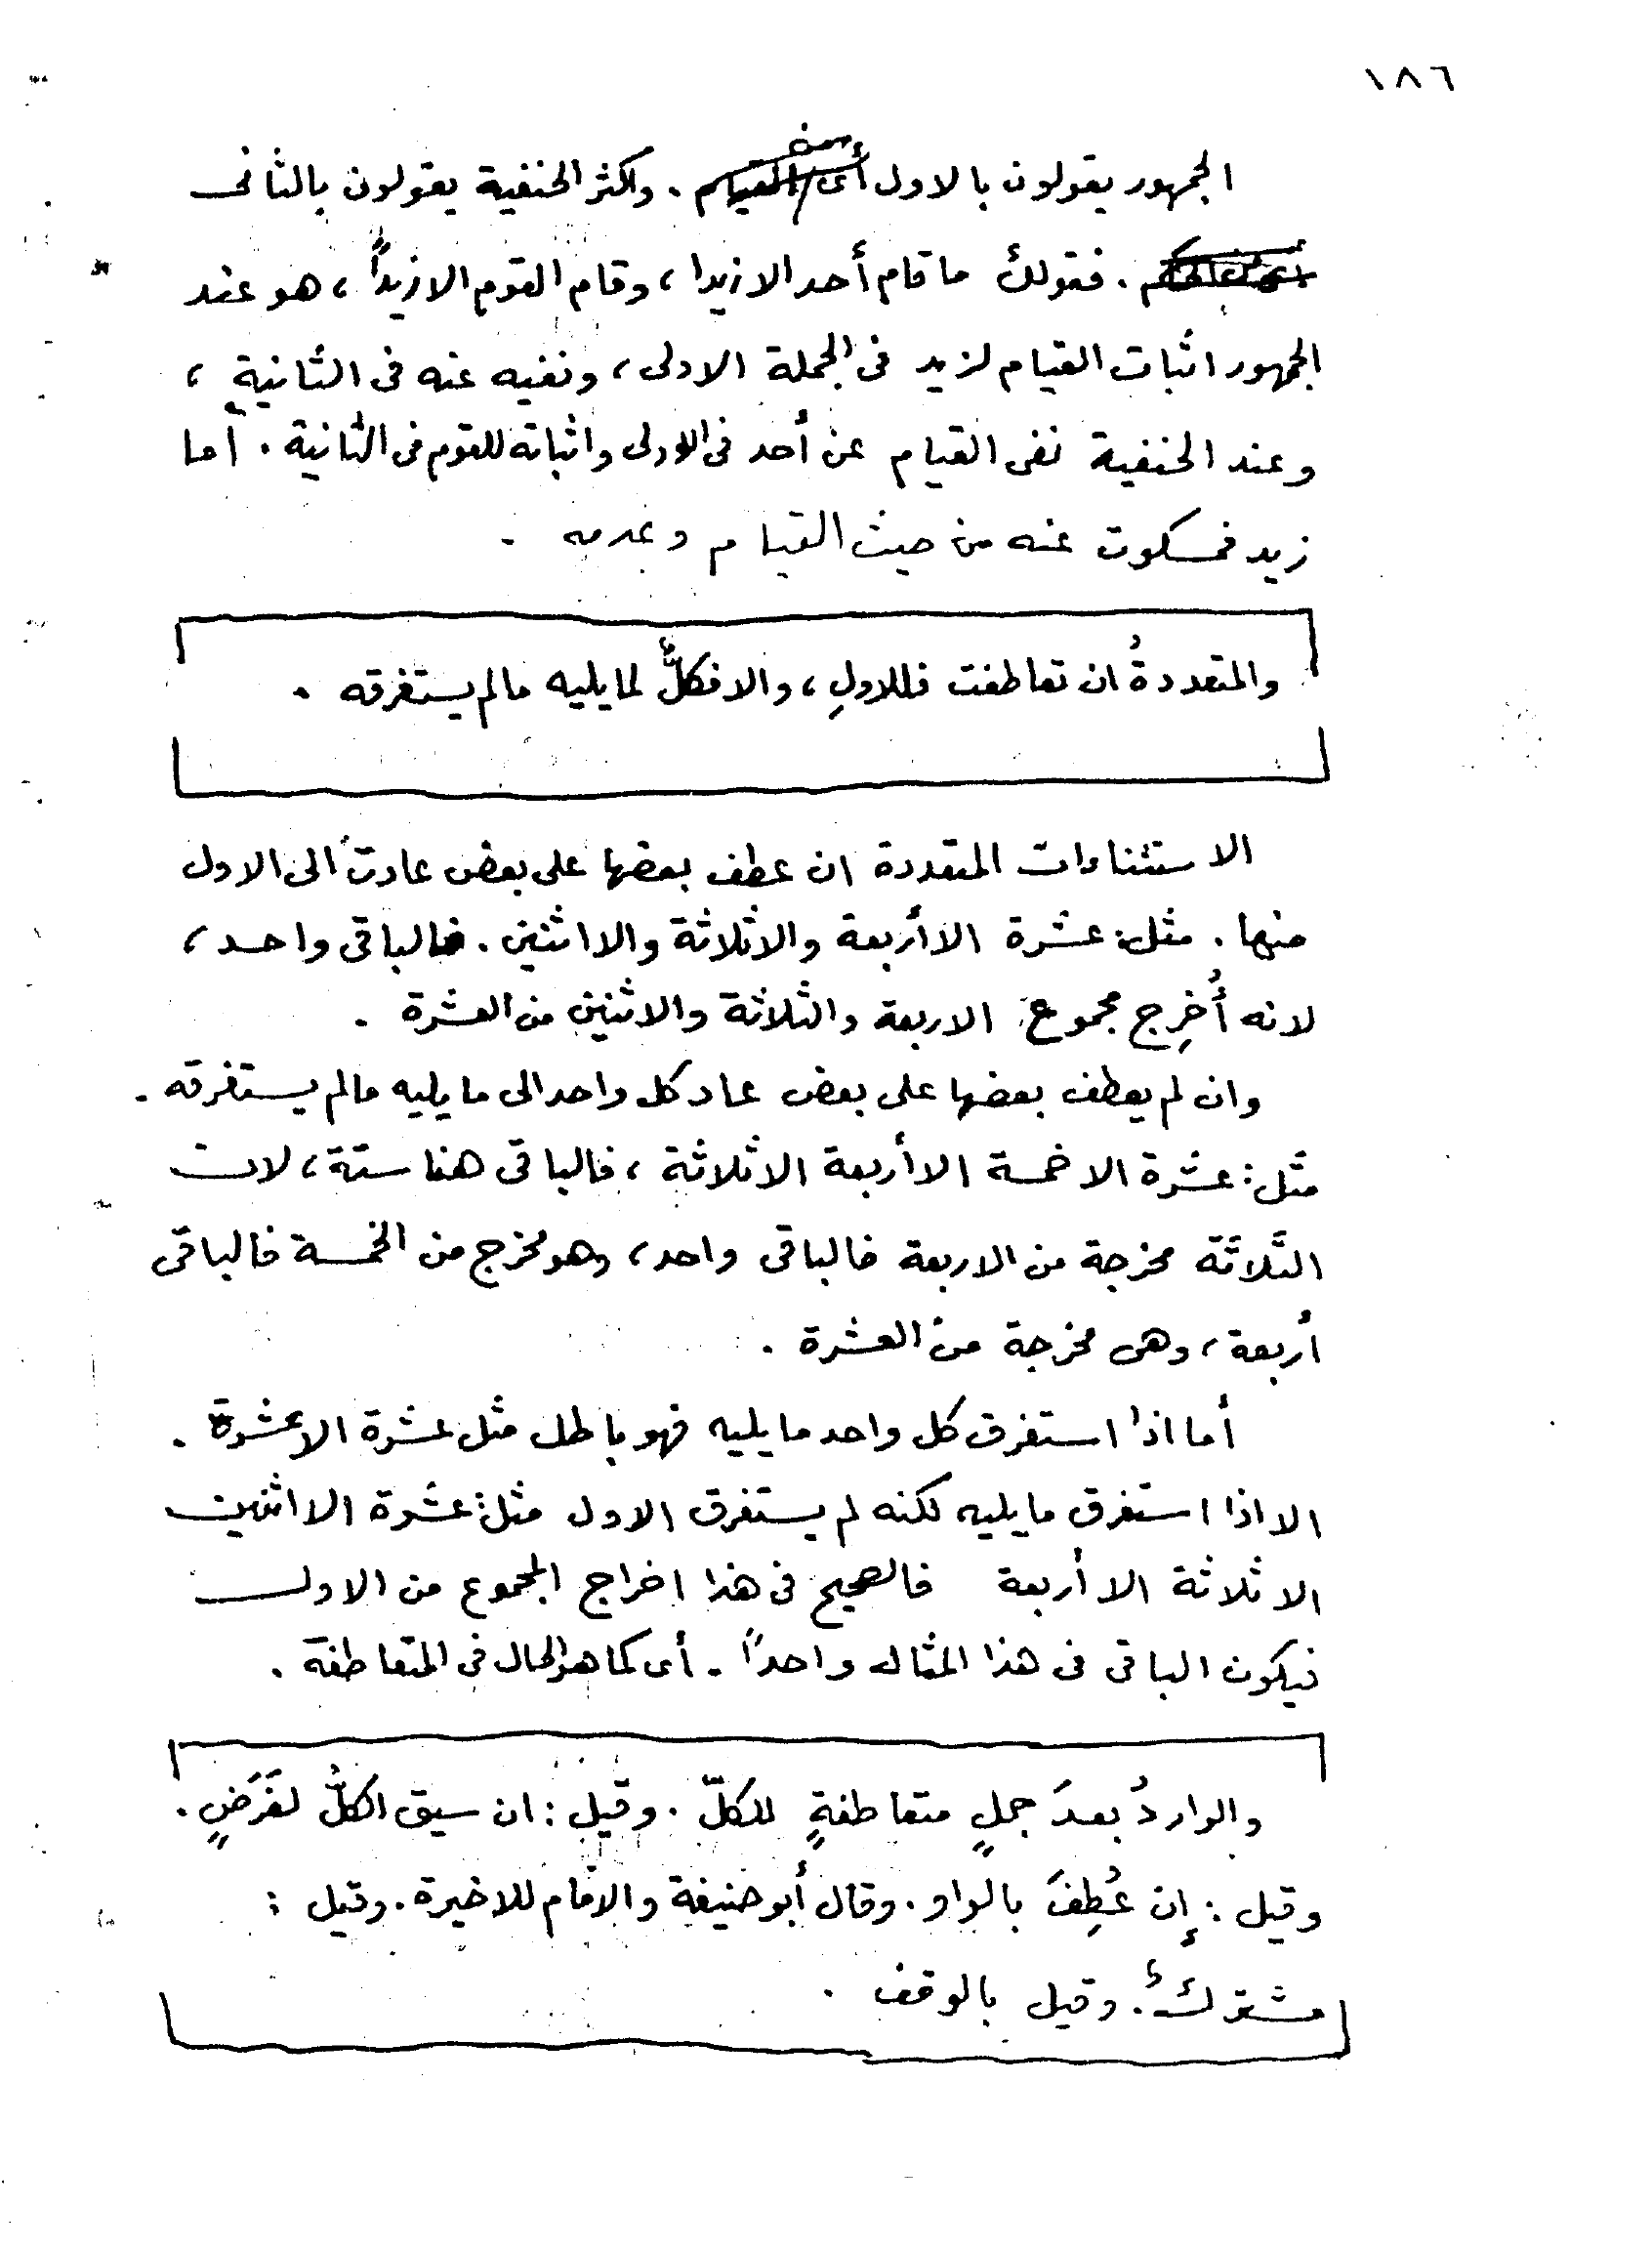 ١٨٦
الجمهور يقولون بالاول . واكثر الحنفية يقولون بالثانى
. فقولك ما قام أحد الا زيدا ، وقام القوم الا زيداً ، هو عند
الجمهور اثبات القيام لزيد فى الجملة الاولى ، ونفيه عنه فى الثانية ،
وعند الحنفية نفى القيام عن أحد فى الاولى واثباته للقوم فى الثانية . أما
زيد فمسكوت عنه من حيث القيام وعدمه .
والمتعددةُ ان تعاطفت فللاولِ ، والا فكلٌّ لما يليه مالم يستغرقه .
الاستثناءات المتعددة ان عطف بعضها على بعض عادت الى الاول
منها . مثل : عشرة الا أربعة والا ثلاثة والا اثنين . فالباقى واحد ،
لانه أُخرِج مجموع الاربعة والثلاثة والاثنين من العشرة .
وان لم يعطف بعضها على بعض عاد كل واحد الى ما يليه مالم يستغرقه .
مثل : عشرة الا خمسة الا أربعة الا ثلاثة ، فالباقى هنا ستة ، لان
الثلاثة مخرجة من الاربعة فالباقى واحد ، وهو مخرج من الخمسة فالباقى
أربعة ، وهى مخرجة من العشرة .
أما اذا استغرق كل واحد ما يليه فهو باطل مثل عشرة الا عشرة .
الا اذا استغرق ما يليه لكنه لم يستغرق الاول مثل : عشرة الا اثنين
الا ثلاثة الا أربعة فالصحيح فى هذا اخراج المجموع من الاول
فيكون الباقى فى هذا المثال واحداً . أى كما هو الحال فى المتعاطفة .
والواردُ بعدَ جملٍ متعاطفةٍ للكلّ . وقيل : ان سيق الكلُّ لغَرَضٍ .
وقيل : إن عُطِفَ بالواو . وقال أبو حنيفة والامام للاخيرة . وقيل :
مشتركٌ . وقيل بالوقف .